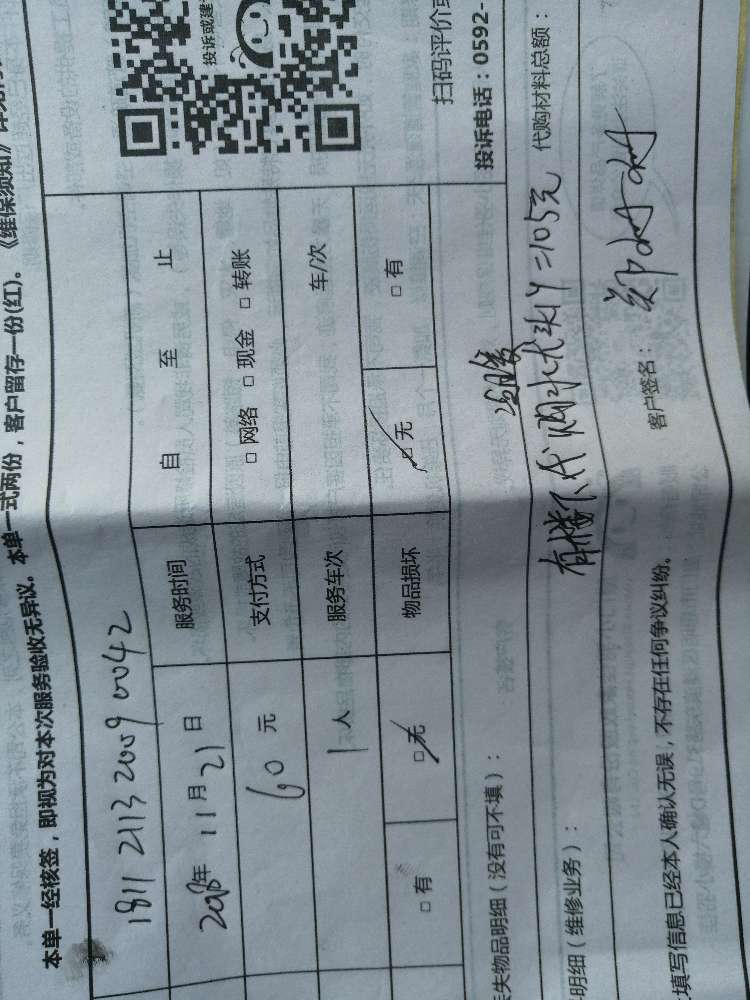 本单一经核签，即视为对本次服务验收无异议。本单一式两份，客户留存一份(红)。《维保须知》详见
投诉或建
1811 2113 2009 0042
2018年 11月21日 服务时间 自 至 止
60 元 支付方式 □ 网络 □ 现金 □ 转账
1 人 服务车次 车/次
□ 有 □ 无 物品损坏 □ 无 □ 有
扫码评价或
投诉电话：0592-
失物品明细（没有可不填）：
明细（维修业务）： 代购材料总额：
1个=105元
填写信息已经本人确认无误，不存在任何争议纠纷。 客户签名：